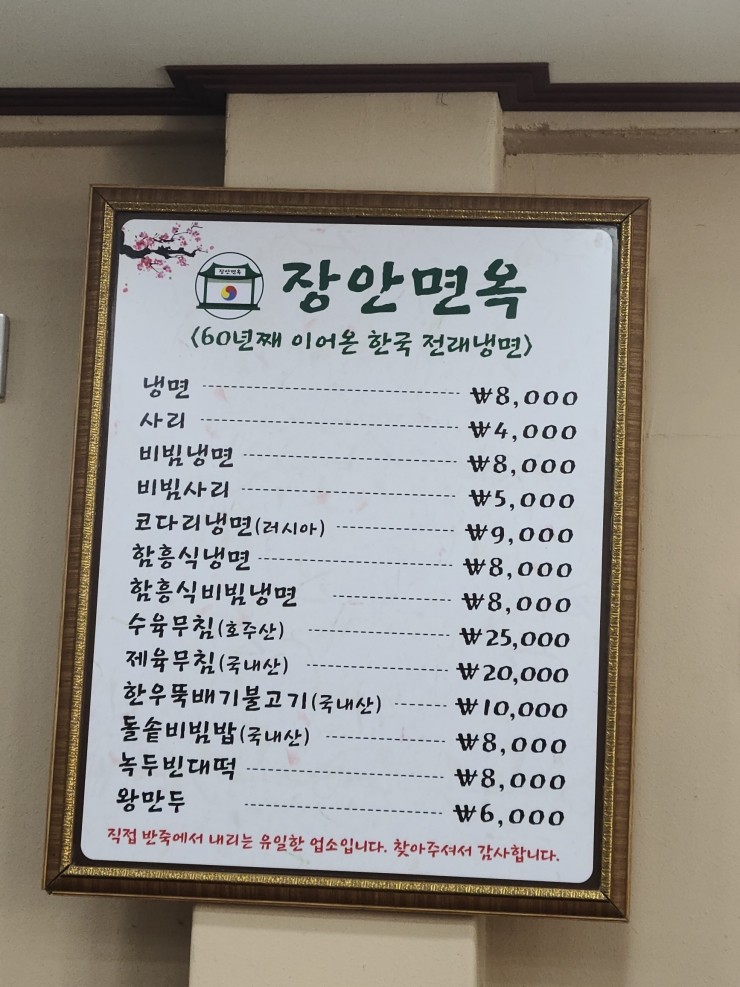 장안면옥
장안면옥
<60년째 이어온 한국 전래냉면>
냉면 ₩8,000
사리 ₩4,000
비빔냉면 ₩8,000
비빔사리 ₩5,000
코다리냉면(러시아) ₩9,000
함흥식냉면 ₩8,000
함흥식비빔냉면 ₩8,000
수육무침(호주산) ₩25,000
제육무침(국내산) ₩20,000
한우뚝배기불고기(국내산) ₩10,000
돌솥비빔밥(국내산) ₩8,000
녹두빈대떡 ₩8,000
왕만두 ₩6,000
직접 반죽에서 내리는 유일한 업소입니다. 찾아주셔서 감사합니다.